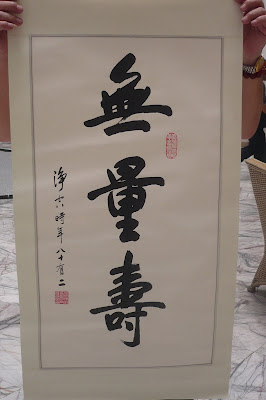 無量壽
淨空時年八十有二